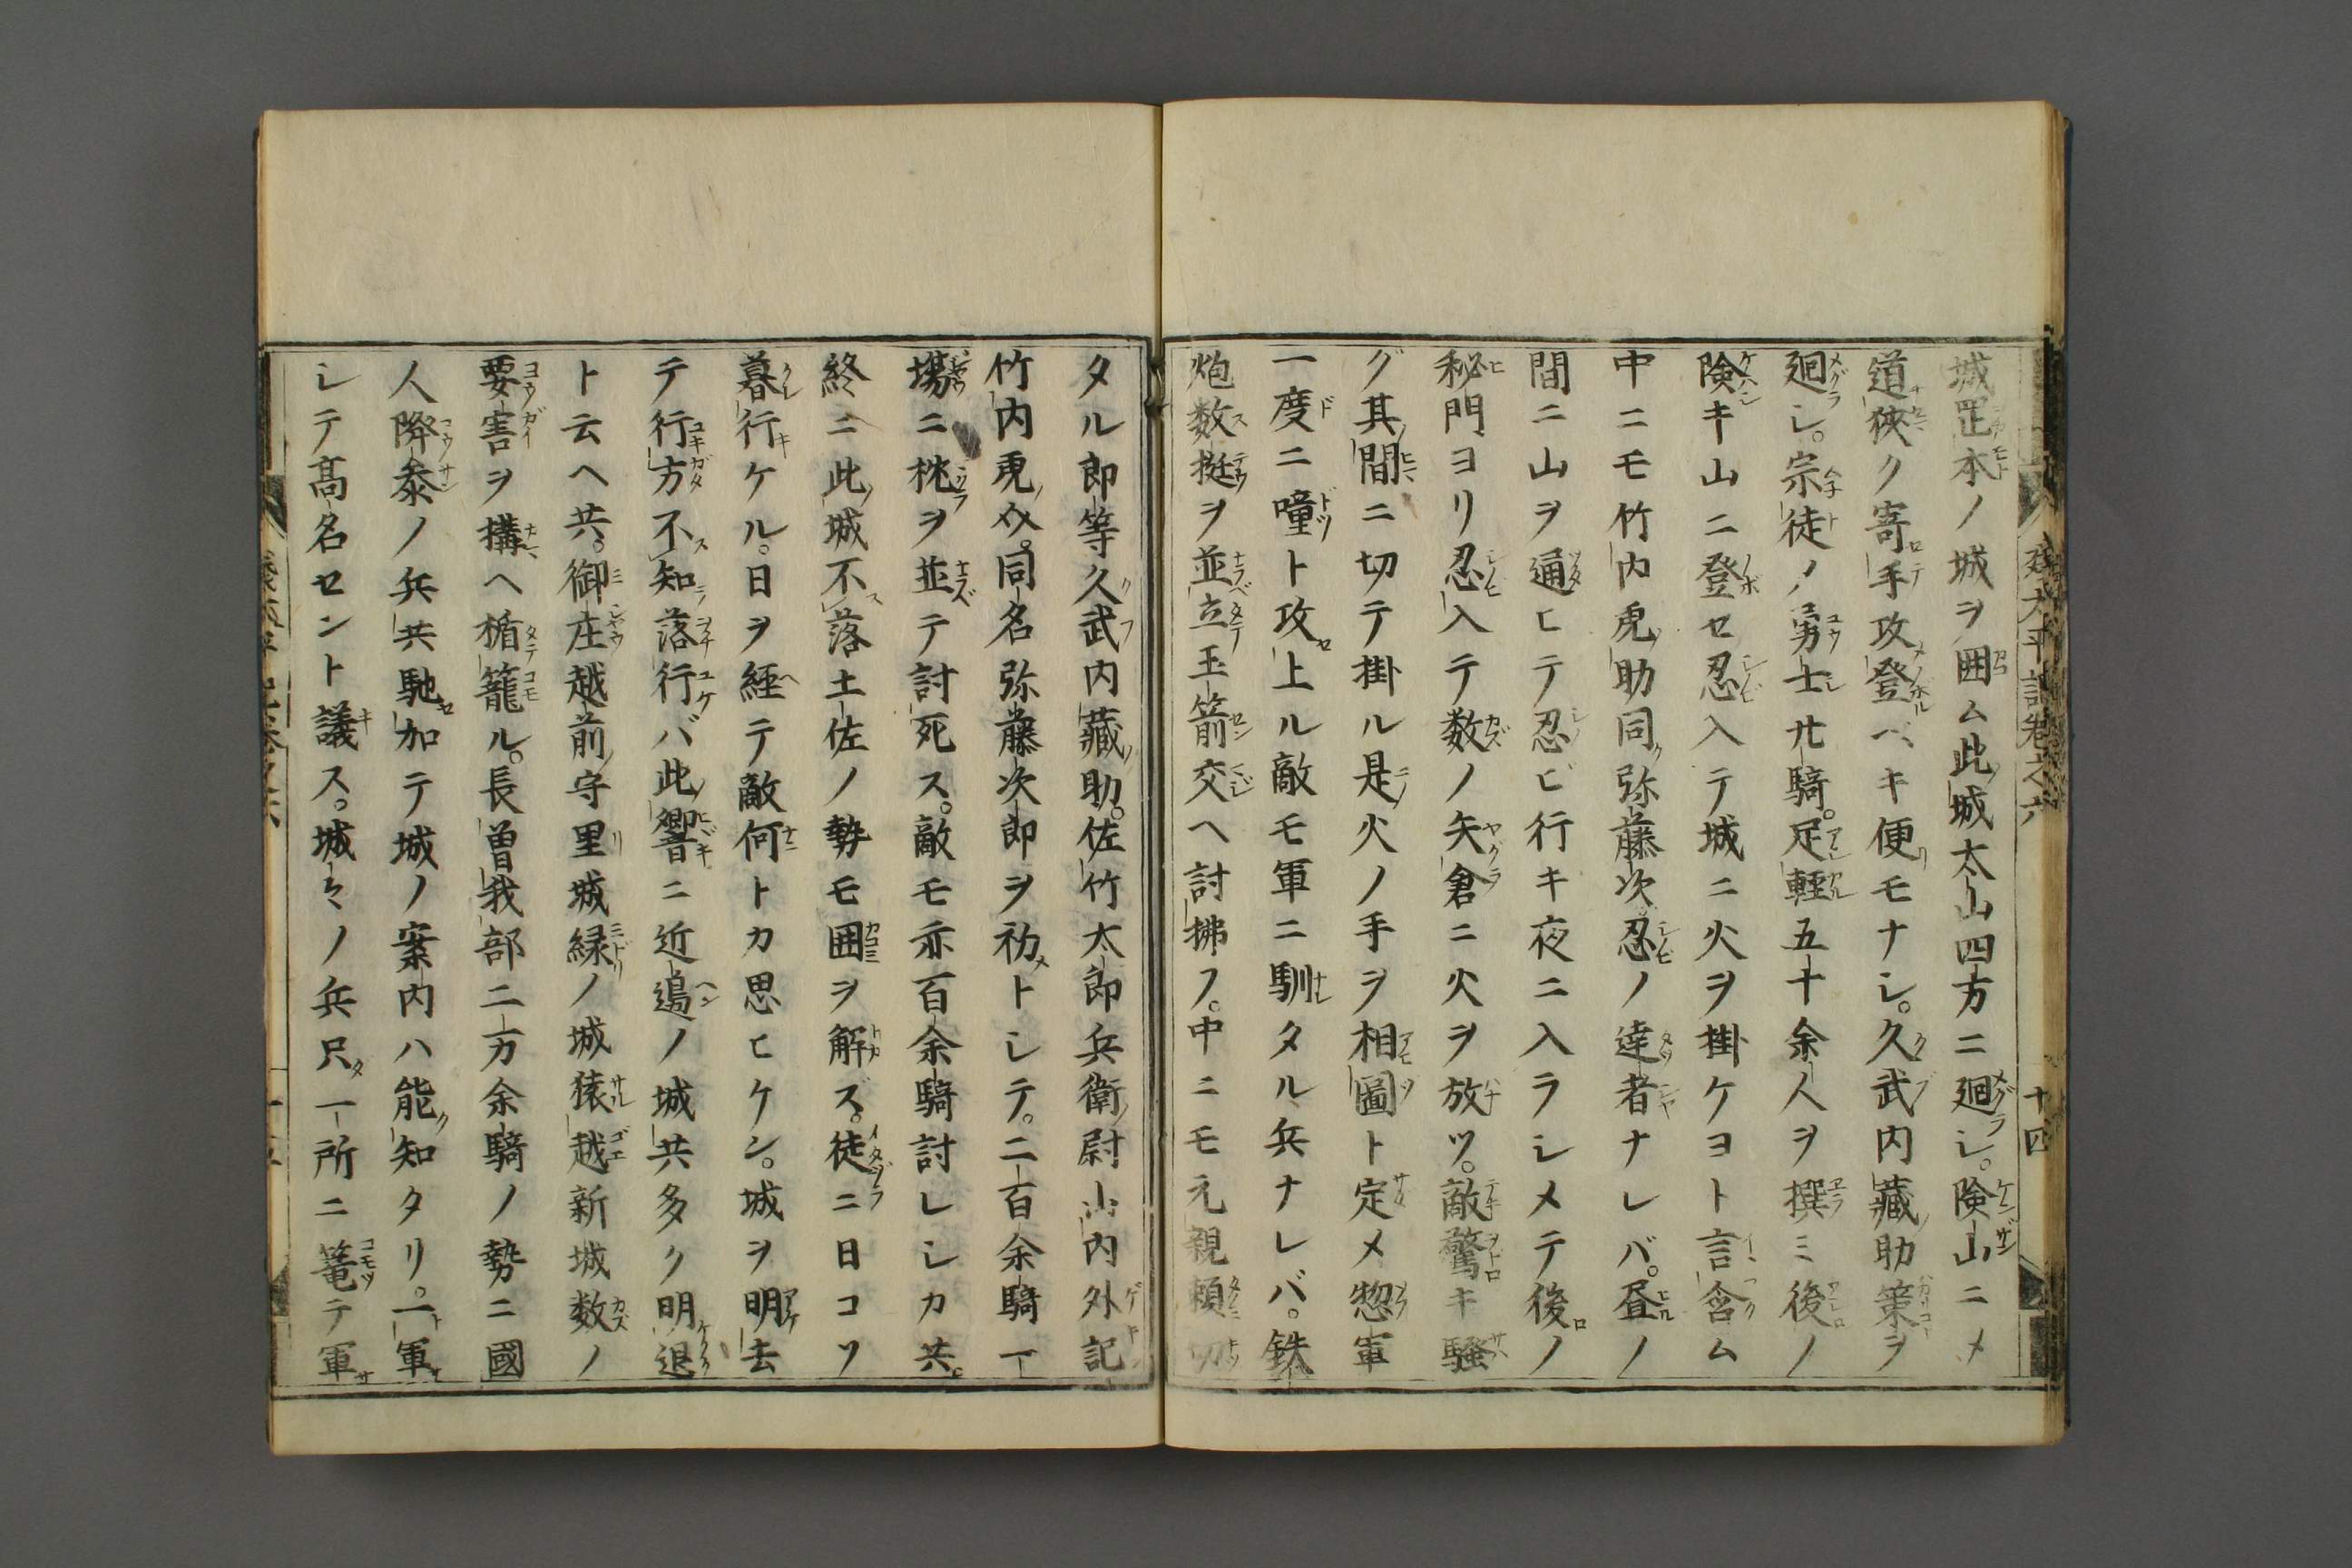 城罡本ノ城ヲ囲ム此城太山四方ニ廻シ。険山ニメ
道狹ク寄手攻登ベキ便モナシ。久武内藏助策ヲ
廻シ。宗徒ノ勇士廾騎。足軽五十余人ヲ撰ミ後ノ
険キ山ニ登セ忍入テ城ニ火ヲ掛ケヨト言含ム
中ニモ竹内虎助同弥藤次忍ノ達者ナレバ。昼ノ
間ニ山ヲ通ヒテ忍ビ行キ夜ニ入ラシメテ後ノ
秘門ヨリ忍入テ数ノ矢倉ニ火ヲ放ツ。敵驚キ騒
グ其間ニ切テ掛ル是火ノ手ヲ相圖ト定メ惣軍
一度ニ噇ト攻上ル敵モ軍ニ馴タル兵ナレバ。鉄
炮数挺ヲ並立玉箭交ヘ討拂フ。中ニモ元親頼切
タル郎等久武内藏助。佐竹太郎兵衛尉山内外記
竹内虎介。同名弥藤次郎ヲ初トシテ。二百余騎一
場ニ枕ヲ並テ討死ス。敵モ亦百余騎討レシカ共。
終ニ此城不落土佐ノ勢モ囲ヲ解ズ。徒ニ日コソ
暮行ケル。日ヲ經テ敵何トカ思ヒケン。城ヲ明去
テ行方不知落行バ此響ニ近邊ノ城共多ク明退
ト云ヘ共。御庄越前守里城緑ノ城猿越新城数ノ
要害ヲ構ヘ楯籠ル。長曽我部二万余騎ノ勢ニ國
人降參ノ兵共馳加テ城ノ案内ハ能知タリ。一軍
シテ髙名セント議ス。城々ノ兵只一所ニ篭テ軍